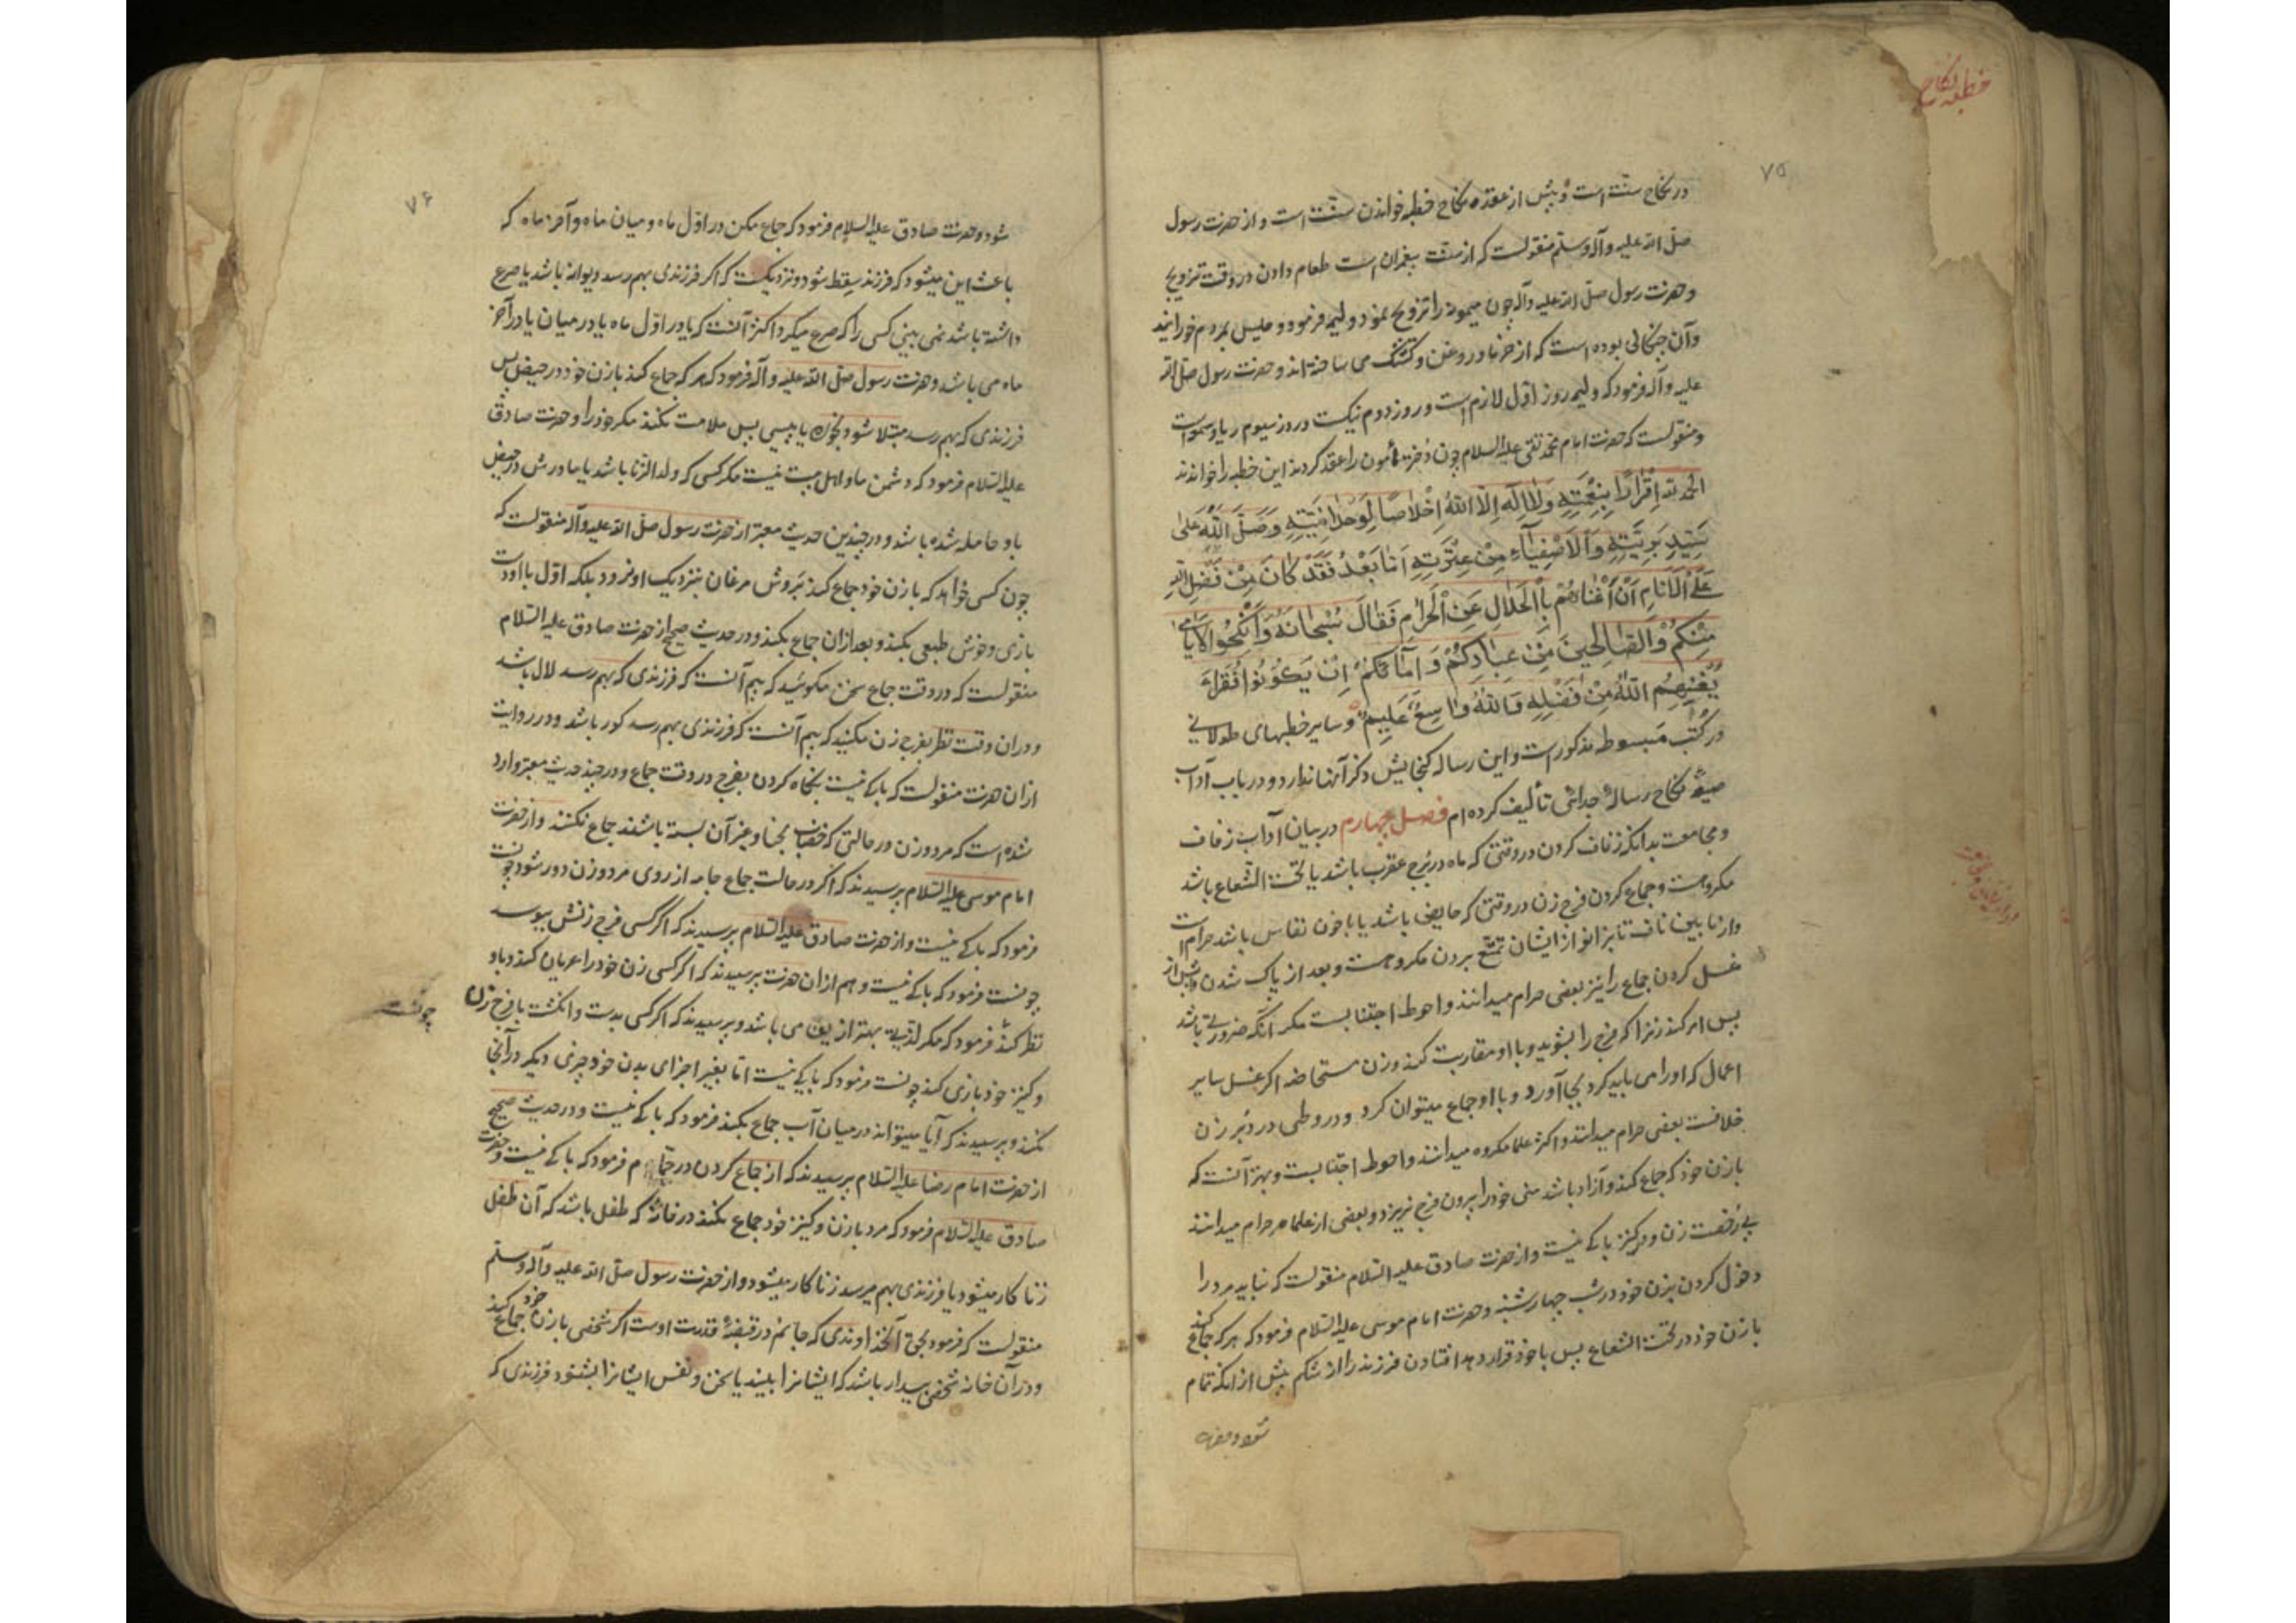 خطبه نکاح
۷۵
در نکاح سنّت است و پیش از عقد نکاح خطبه خواندن سنّت است و از حضرت رسول
صلّی الله علیه وآله وسلّم منقولست که از سنّت پیغمبران است طعام دادن در وقت تزویج
و حضرت رسول صلّی الله علیه وآله چون میمونه را تزویج نمود ولیمه فرمود و حلیس بمردم خورانید
وآن چنکالی بوده است که از خرما و روغن و کشک می ساخته اند و حضرت رسول صلّی الله
علیه وآله فرمود که ولیمه روز اوّل لازم است و روز دوم نیکست و روز سیوم ریا و سمعه است
و منقولست که حضرت امام محمد تقی علیه السلام چون دختر مأمون را عقد کردند این خطبه را خواندند
الحمد لله اِقْرٰارًا بِنِعْمَتِهِ وَلٰا اِلٰهَ اِلَّا اللّٰهُ اِخْلٰاصًا لِوَحْدٰانِیَّتِهِ وَصَلَّی اللّٰهُ عَلٰی
سَیِّدِ بَرِیَّتِهِ وَالْاَصْفِیٰآءِ مِنْ عِتْرَتِهِ اَمّٰا بَعْدُ فَقَدْ کٰانَ مِنْ فَضْلِ اللّٰهِ
عَلَی الْاَنٰامِ اَنْ اَغْنٰاهُمْ بِالْحَلٰالِ عَنِ الْحَرٰامِ فَقٰالَ سُبْحٰانَهُ وَاَنْکِحُوا الْاَیٰامٰی
مِنْکُمْ وَالصّٰالِحینَ مِنْ عِبٰادِکُمْ وَ اِمٰآئِکُمْ اِنْ یَکُونُوا فُقَرٰآءَ
یُغْنِهِمُ اللّٰهُ مِنْ فَضْلِهِ وَاللّٰهُ وٰاسِعٌ عَلیِمٌ و سایر خطبهای طولانی
در کُتُب مبسوطه مذکور است و این رساله کنجایش ذکر آنها ندارد و در باب آداب
صیغهٔ نکاح رسالهٔ جدائی تألیف کرده ام فصل چهارم در بیان آداب زفاف
و مجامعت بدانکه زفاف کردن در وقتی که ماه در برج عقرب باشد یا تحت الشعاع باشد
مکروهست و جماع کردن فرج زن در وقتی که حایض باشد یا با خون نفاس باشد حرام است
و از ما بین ناف تا بزانو از ایشان تمتّع بردن مکروهست و بعد از پاک شدن و پیش از
غسل کردن جماع را نیز بعضی حرام میدانند و احوط اجتنابست مکر آنکه ضرورتی باشد
پس امر کند زنرا که فرج را بشوید و با او مقاربت کند و زن مستحاضه اکر غسل سایر
اعمال که او را می باید کرد بجا آورد و با او جماع میتوان کرد و در وطی در دُبر زن
خلافست بعضی حرام میدانند و اکثر علما مکروه میدانند و احوط اجتنابست و بهتر آنست که
با زن خود که جماع کند و آزاد باشد منی خود را بیرون فرج نریزد و بعضی از علما حرام میدانند
بی رُخصت زن و در کنیز باکی نیست و از حضرت صادق علیه السّلام منقولست که نباید مرد را
دخول کردن بزن خود در شب چهارشنبه و حضرت امام موسی علیه السّلام فرمود که هر که جماع کند
با زن خود در تحت الشعاع پس با خود قرار دهد افتادن فرزند را از شکم پیش از آنکه تمام
شود و حضرت
۷۶
شود و حضرت صادق علیه السلام فرمود که جماع مکن در اوّل ماه و میان ماه و آخر ماه که
باعث این میشود که فرزند سقط شود و نزدیکست که اکر فرزندی بهم رسد دیوانه باشد یا صرع
داشته باشد نمی بینی کسی را که صرع میکیرد اکثر آنست که یا در اوّل ماه یا در میان یا در آخر
ماه می باشد و حضرت رسول صلّی الله علیه وآله فرمود که هر که جماع کند با زن خود در حیض پس
فرزندی که بهم رسد مبتلا شود بخوره یا پیسی پس ملامت نکند مکر خود را و حضرت صادق
علیه السّلام فرمود که دشمن ما اهل بیت نیست مکر کسی که ولد الزنا باشد یا مادرش در حیض
باو حامله شده باشد و در چندین حدیث معتبر از حضرت رسول صلّی الله علیه وآله منقولست که
چون کسی خواهد که با زن خود جماع کند بروش مرغان بنزدیک او نرود بلکه اوّل با او دست
بازی و خوش طبعی بکند و بعد از ان جماع بکند و در حدیث صحیح از حضرت صادق علیه السّلام
منقولست که در وقت جماع سخن مکوئید که بیم آنست که فرزندی که بهم رسد لال باشد
و در ان وقت نظر بفرج زن مکنید که بیم آنست که فرزندی بهم رسد کور باشد و در روایت
از ان حضرت منقولست که باکی نیست نکاه کردن بفرج در وقت جماع و در چند حدیث معتبر وارد
شده است که مرد و زن در حالتی که خضاب بحنا و غیر آن بسته باشند جماع نکنند و از حضرت
امام موسی علیه السّلام پرسیدند که اکر در حالت جماع جامه از روی مرد و زن دور شود چونست
فرمود که باکی نیست و از حضرت صادق علیه السّلام پرسیدند که اکر کسی فرج زنش ببوسد
چونست فرمود که باکی نیست و هم از ان حضرت پرسیدند که اکر کسی زن خود را عریان کند و باو
نظر کند فرمود که مکر لذّتی بهتر از این می باشد و پرسیدند که اکر کسی بدست و انکشت با فرج زن
چونست
و کنیز خود بازی کند چونست فرمود که باکی نیست امّا بغیر اجزای بدن خود چیزی دیکر در آنجا
نکند و پرسیدند که آیا میتواند در میان آب جماع بکند فرمود که باکی نیست و در حدیث صحیح
از حضرت امام رضا علیه السّلام پرسیدند که از جماع کردن در حمّام فرمود که باکی نیست و حضرت
صادق علیه السّلام فرمود که مرد با زن و کنیز خود جماع نکند در خانهٔ که طفل باشد که آن طفل
زنا کار میشود یا فرزندی بهم میرسد زنا کار میشود و از حضرت رسول صلّی الله علیه وآله وسلّم
منقولست که فرمود بحق آنخداوندی که جانم در قبضهٔ قدرت اوست اکر شخصی با زن خود جماع کند
و در آن خانه شخصی بیدار باشد که ایشانرا ببیند یا سخن و نفس ایشانرا بشنود فرزندی که